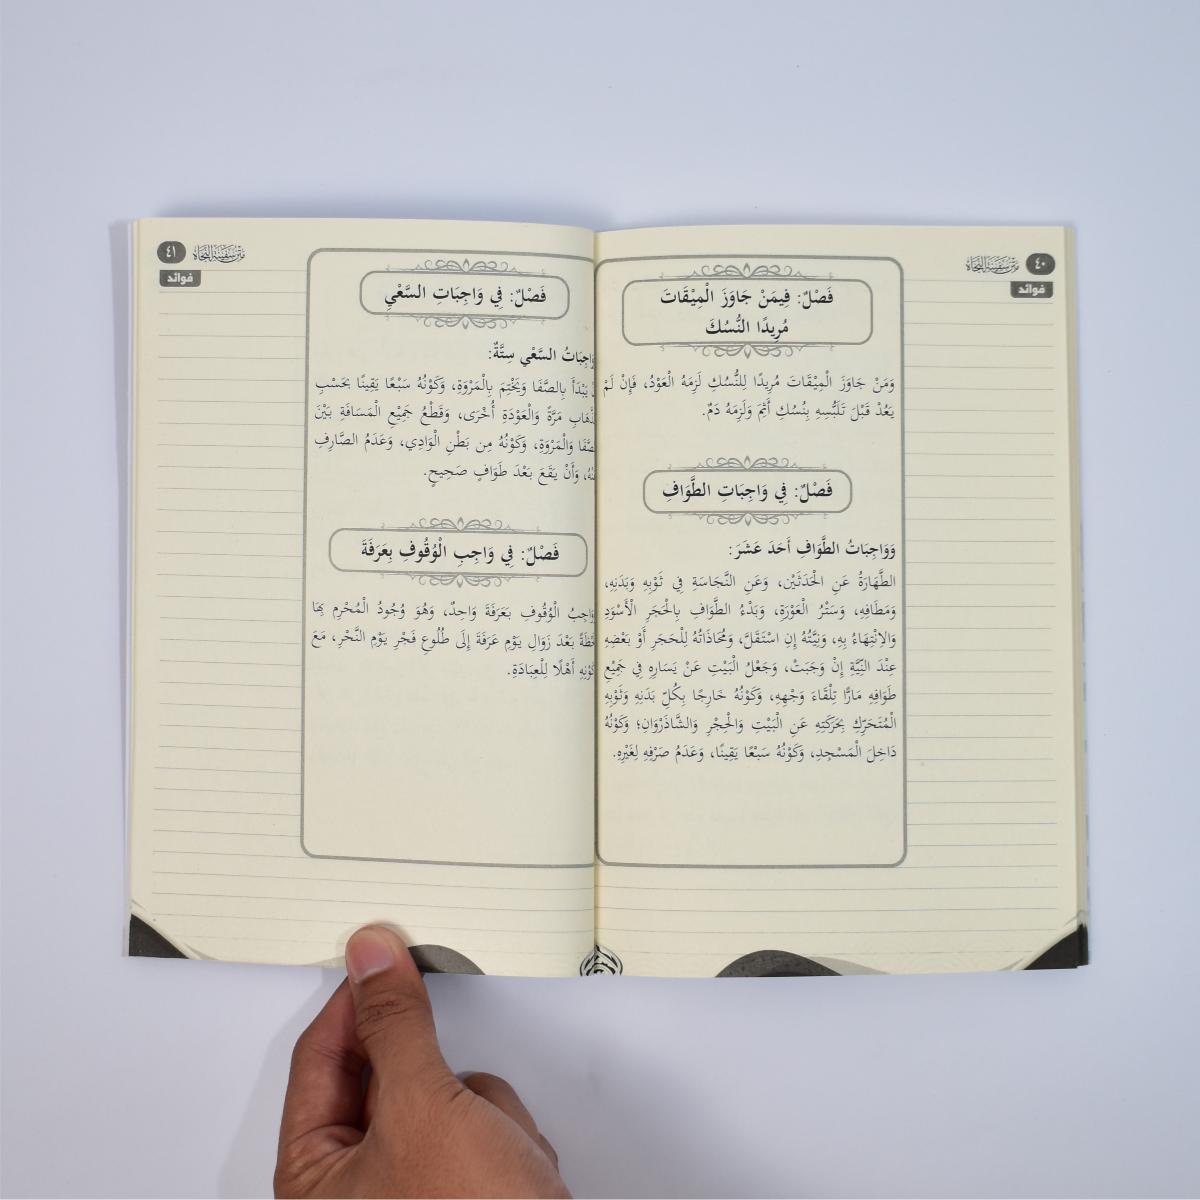 ٤٠
متن سفينة النجاة
فوائد
فَصْلٌ: فِيمَنْ جَاوَزَ الْمِيْقَاتَ
مُرِيدًا النُّسُكَ
وَمَنْ جَاوَزَ الْمِيْقَاتَ مُرِيدًا لِلنُّسُكِ لَزِمَهُ الْعَوْدُ، فَإِنْ لَمْ
يَعُدْ قَبْلَ تَلَبُّسِهِ بِنُسُكٍ أَثِمَ وَلَزِمَهُ دَمٌ.
فَصْلٌ: فِي وَاجِبَاتِ الطَّوَافِ
وَوَاجِبَاتُ الطَّوَافِ أَحَدَ عَشَرَ:
الطَّهَارَةُ عَنِ الْحَدَثَيْنِ، وَعَنِ النَّجَاسَةِ فِي ثَوْبِهِ وَبَدَنِهِ،
وَمَطَافِهِ، وَسَتْرُ الْعَوْرَةِ، وَبَدْءُ الطَّوَافِ بِالْحَجَرِ الْأَسْوَدِ
وَالِانْتِهَاءُ بِهِ، وَنِيَّتُهُ إِنِ اسْتَقَلَّ، وَمُحَاذَاتُهُ لِلْحَجَرِ أَوْ بَعْضِهِ
عِنْدَ النِّيَّةِ إِنْ وَجَبَتْ، وَجَعْلُ الْبَيْتِ عَنْ يَسَارِهِ فِي جَمِيْعِ
طَوَافِهِ مَارًّا تِلْقَاءَ وَجْهِهِ، وَكَوْنُهُ خَارِجًا بِكُلِّ بَدَنِهِ وَثَوْبِهِ
الْمُتَحَرِّكِ بِحَرَكَتِهِ عَنِ الْبَيْتِ وَالْحِجْرِ وَالشَّاذَرْوَانِ؛ وَكَوْنُهُ
دَاخِلَ الْمَسْجِدِ، وَكَوْنُهُ سَبْعًا يَقِينًا، وَعَدَمُ صَرْفِهِ لِغَيْرِهِ.
٤١
متن سفينة النجاة
فوائد
فَصْلٌ: فِي وَاجِبَاتِ السَّعْيِ
السَّعْيِ سِتَّةٌ:
يَبْدَأَ بِالصَّفَا وَيَخْتِمَ بِالْمَرْوَةِ، وَكَوْنُهُ سَبْعًا يَقِينًا بِحَسْبِ
مَرَّةً وَالْعَوْدَةِ أُخْرَى، وَقَطْعُ جَمِيْعِ الْمَسَافَةِ بَيْنَ
وَالْمَرْوَةِ، وَكَوْنُهُ مِن بَطْنِ الْوَادِي، وَعَدَمُ الصَّارِفِ
وَأَنْ يَقَعَ بَعْدَ طَوَافٍ صَحِيحٍ.
فَصْلٌ: فِي وَاجِبِ الْوُقُوفِ بِعَرَفَةَ
الْوُقُوفِ بَعَرَفَةَ وَاحِدٌ، وَهُوَ وُجُودُ الْمُحْرِمِ بِهَا
بَعْدَ زَوَالِ يَوْمِ عَرَفَةَ إِلَى طُلُوعِ فَجْرِ يَوْمِ النَّحْرِ، مَعَ
أَهْلًا لِلْعِبَادَةِ.